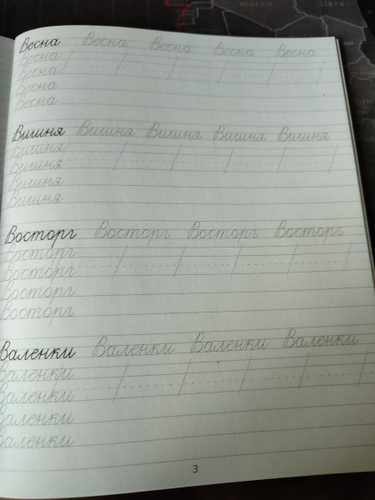 Весна Весна Весна Весна Весна
Весна
Весна
Весна
Весна
Вишня Вишня Вишня Вишня Вишня
Вишня
Вишня
Вишня
Вишня
Восторг Восторг Восторг Восторг
Восторг
Восторг
Восторг
Восторг
Валенки Валенки Валенки Валенки
Валенки
Валенки
Валенки
Валенки
3